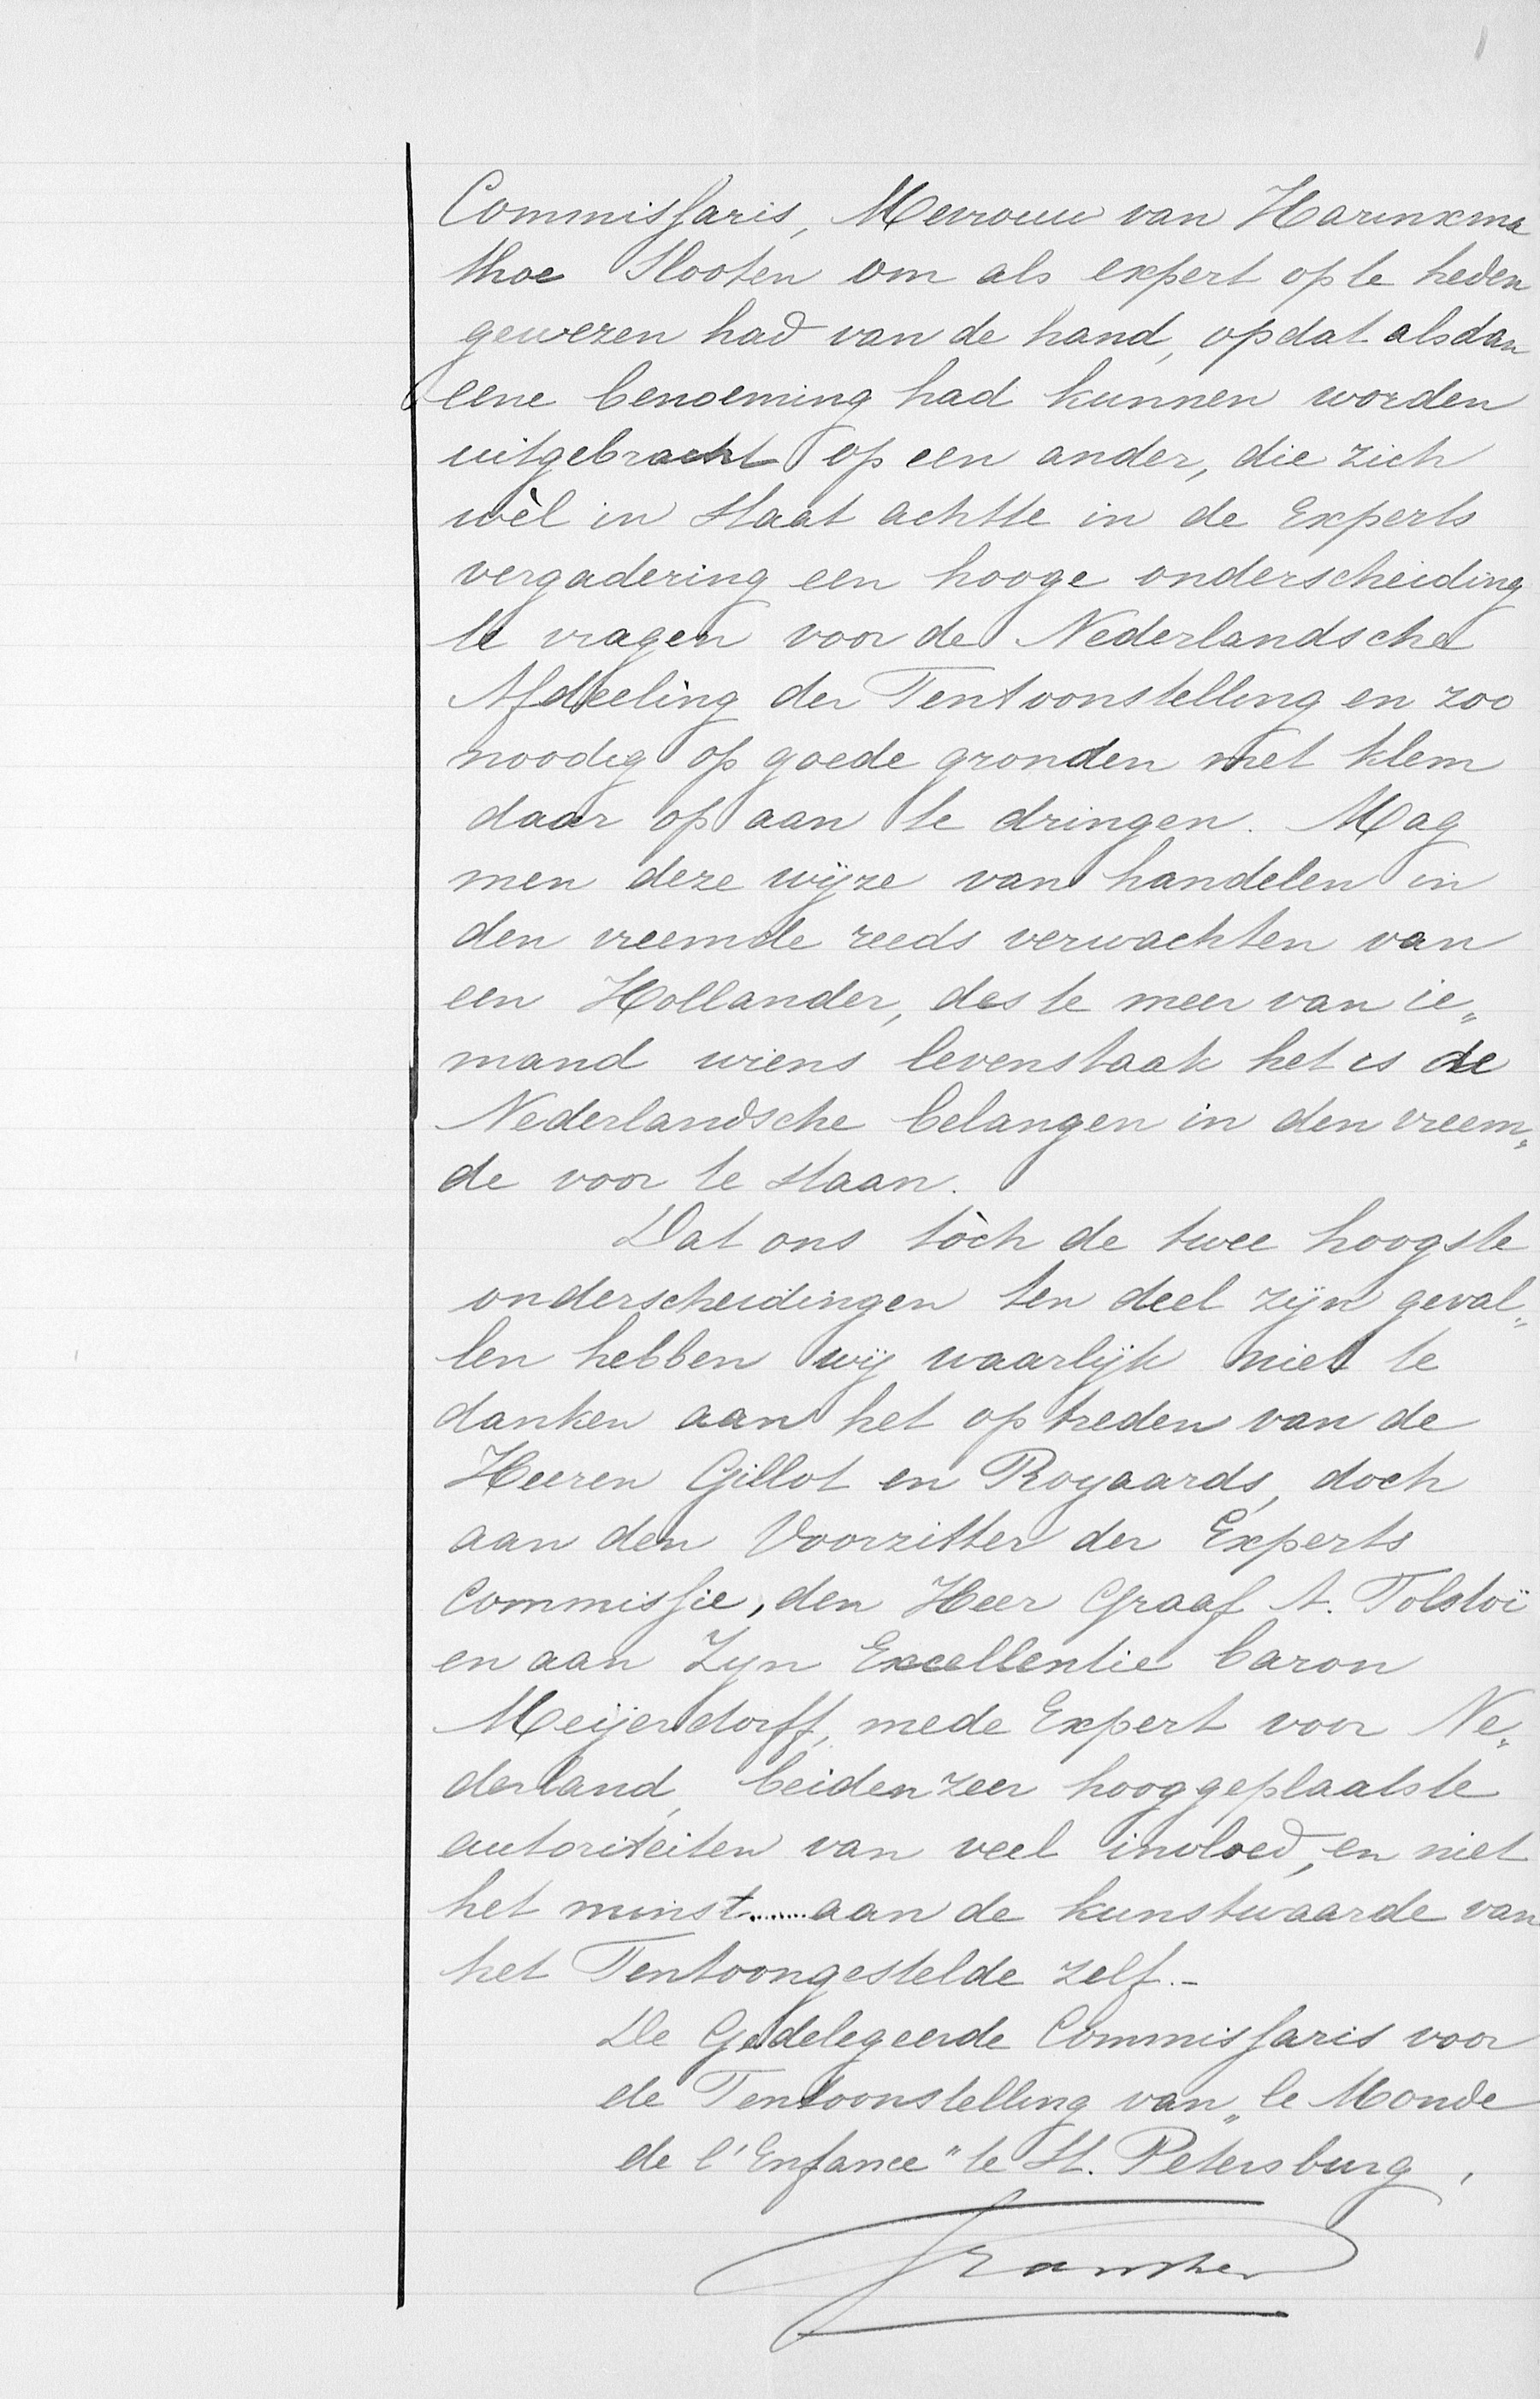 Commissaris, Mevrouw van Harinxma
thoe Slooten om als expert op te heden
gewezen had van de hand, opdat alsdan
eene benoeming had kunnen worden
uitgebracht op een ander, die zich
wèl in staat achtte in de Experts
vergadering een hooge onderscheiding
te vragen voor de Nederlandsche
Afdeeling der Tentoonstelling en zoo
noodig op goede gronden met klem
daar op aan te dringen. Mag
men deze wijze van handelen in
den vreemde reeds verwachten van
een Hollander, des te meer van ie„
mand wiens levenstaak het is de
Nederlandsche belangen in den vreem„
de voor te staan.
Dat ons tòch de twee hoogste
onderscheidingen ten deel zijn geval„
len hebben wij waarlijk niet te
danken aan het optreden van de
Heeren Gillot en Royaards, doch
aan den Voorzitter der Experts
Commissie, den Heer Graaf A. Tolstoï
en aan Zyn Excellentie baron
Meijerdorff, mede Expert voor Ne„
derland, beiden zeer hooggeplaatste
autoriteiten van veel invloed, en niet
het minst........aan de kunstwaarde van
het Tentoongestelde zelf.-
De Gedelegeerde Commissaris voor
de Tentoonstelling van „le Monde
de l'Enfance" te St. Petersburg,